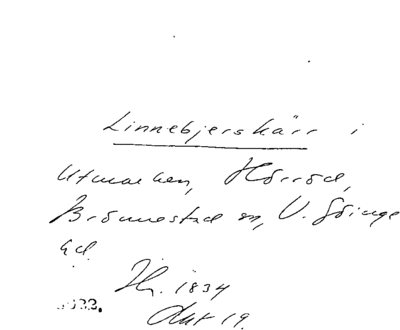 Linnebjerskärr i
Utmarken, Hörröd,
Brönnestad sn, V. Göinge
hd.
Jfr. 1834
Akt 19.